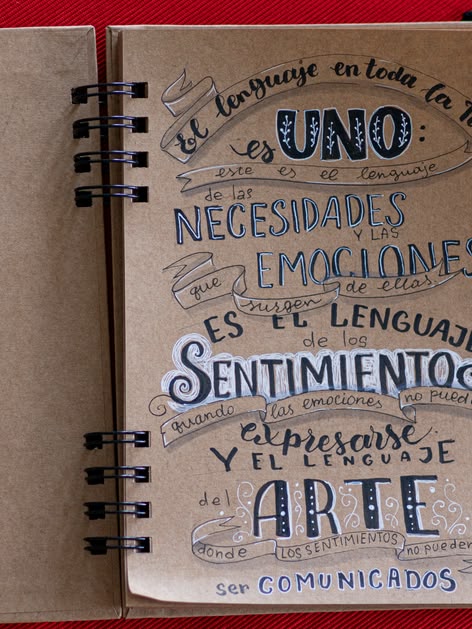 El lenguaje en toda la
es UNO:
este es el lenguaje
de las
NECESIDADES
Y LAS
EMOCIONES
que surgen de ellas.
ES EL LENGUAJE
de los
SENTIMIENTOS
quando las emociones no pued
expresarse.
Y EL LENGUAJE
del ARTE
donde LOS SENTIMIENTOS no pueden
ser COMUNICADOS